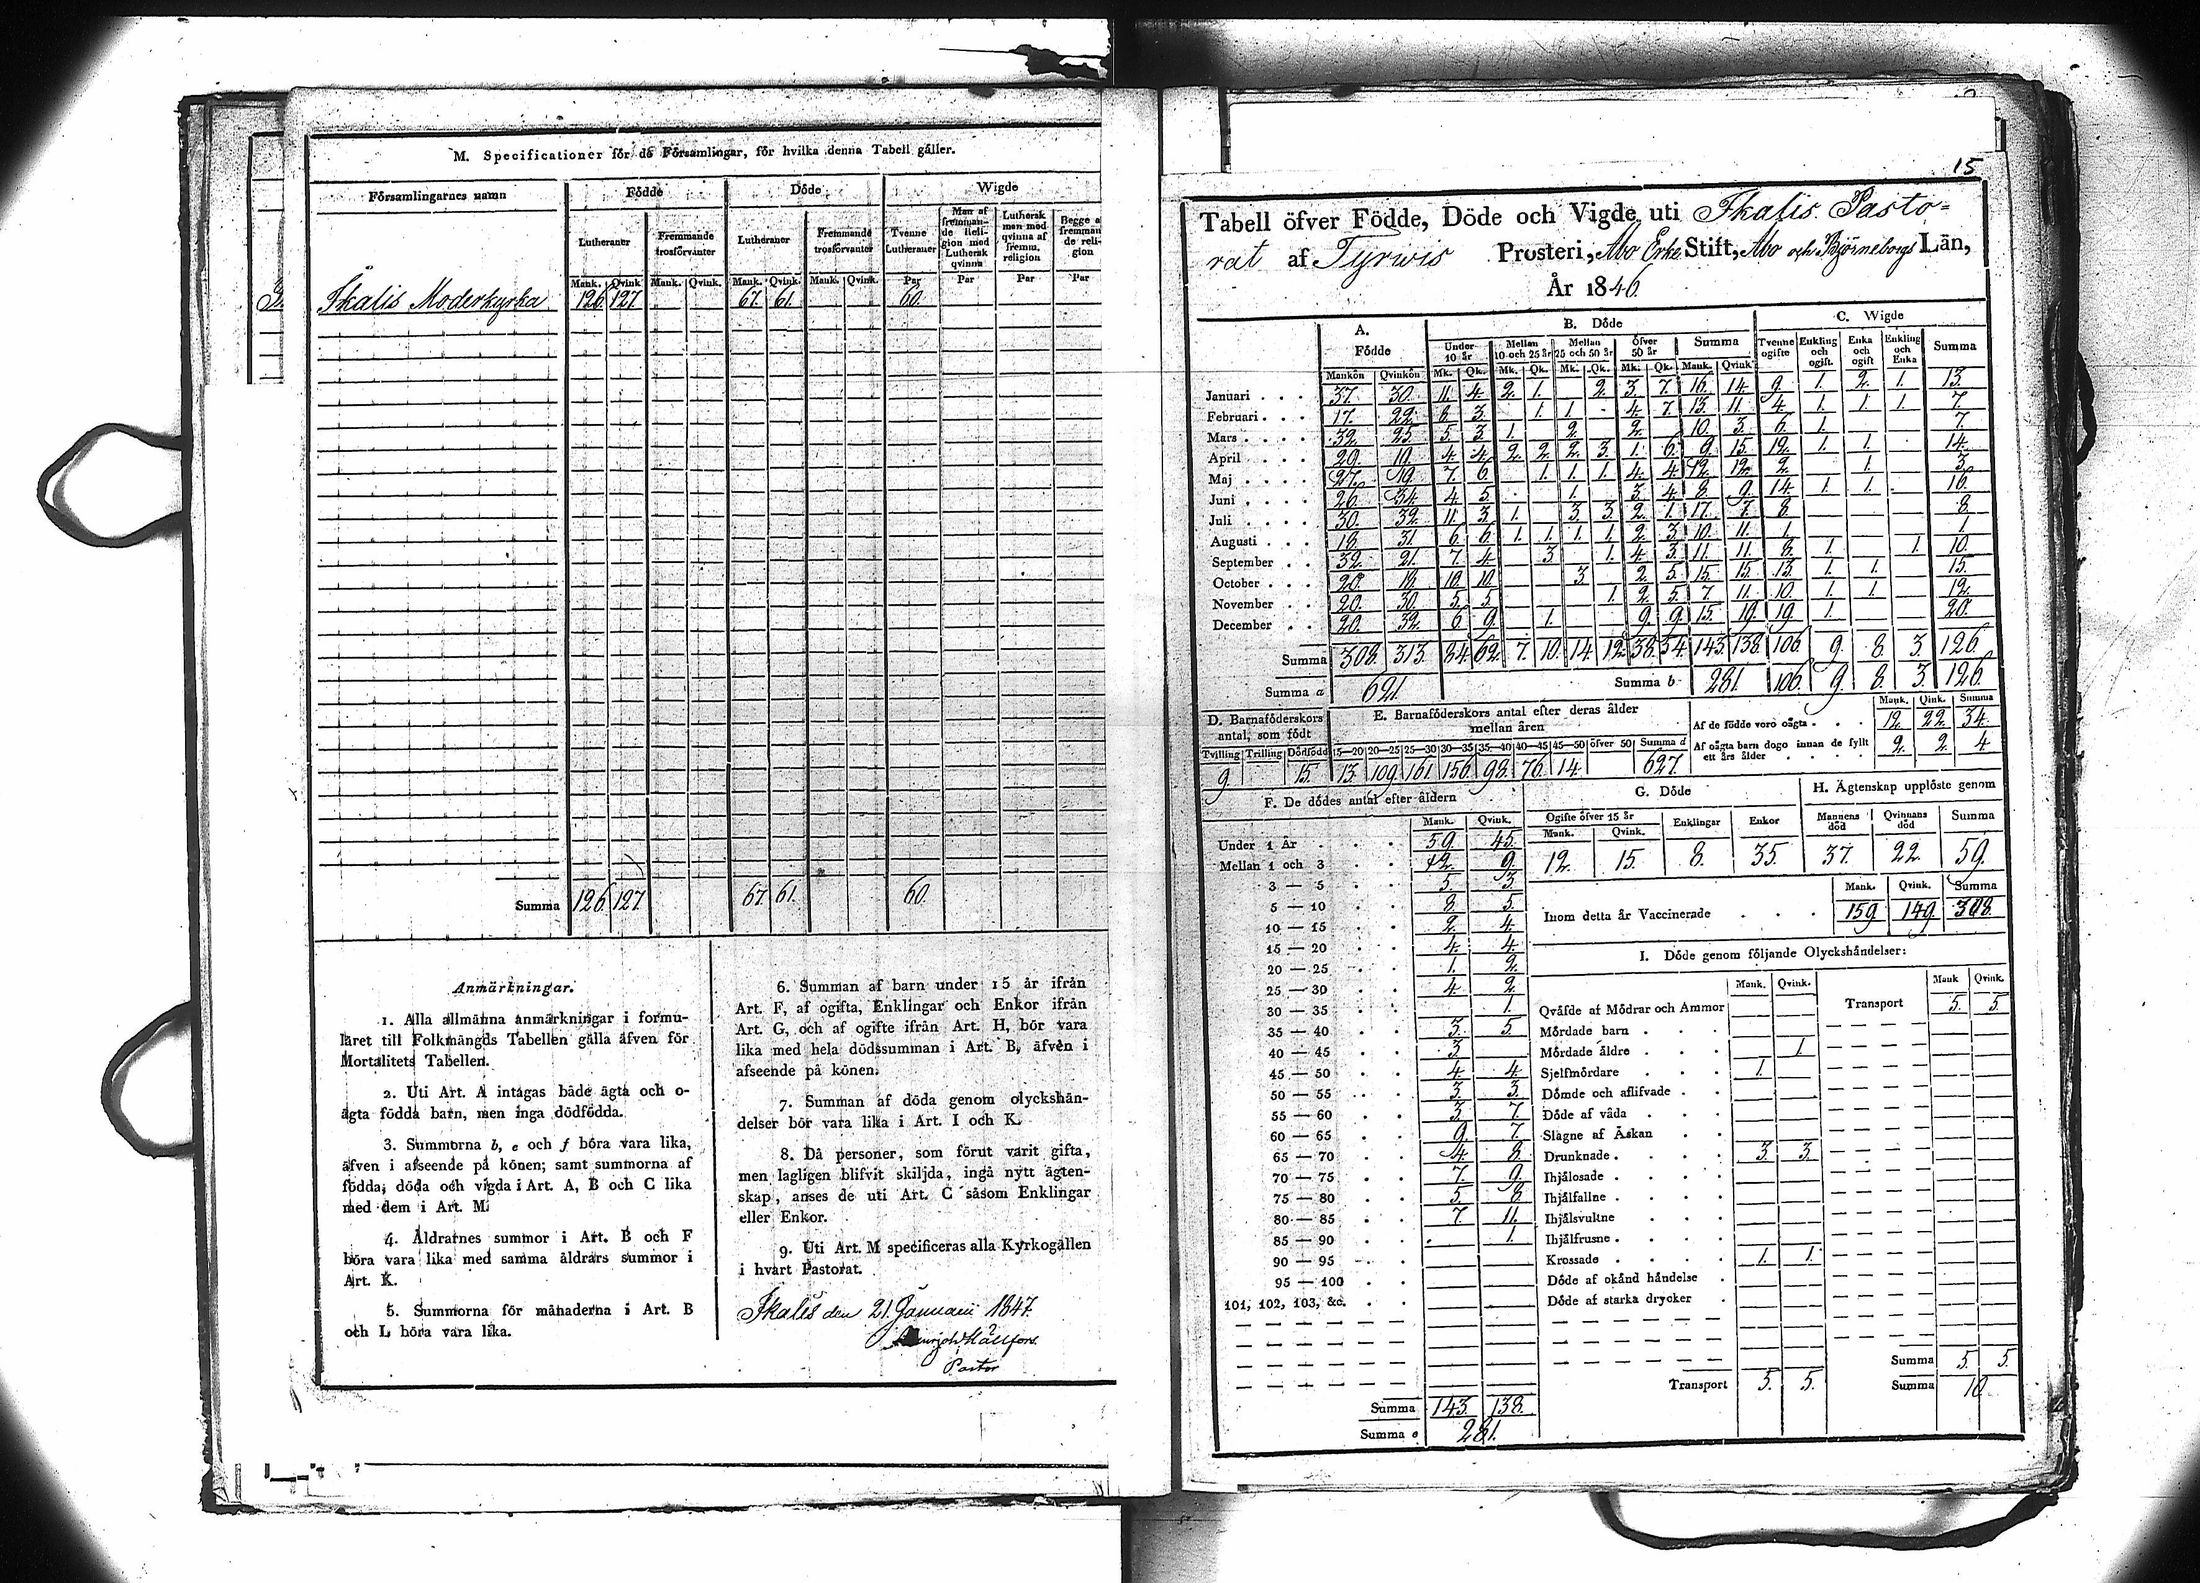 M. Specificationer för de Församlingar, för hvilka denna Tabell gäller.
Församlingarnes namn Födde Döde Wigde
Lutheraner Fremmande trosförvanter Lutheraner Fremmande trosförvanter Tvenne Lutheraner Man af fremmande Religion med Luthersk qvinna Luthersk man med qvinna af fremm. religion Begge af fremmande religion
Mank. Qvink. Mank. Qvink. Mank. Qvink. Mank. Qvink. Par Par Par Par
Ikalis Moderkyrka 126. 127. 67. 61. 60.
Summa 126. 127 67 61. 60.
Anmärkningar.
1. Alla allmänna anmärkningar i formu-
läret till Folkmängds Tabellen gälla äfven för
Mortalitets Tabellen.
2. Uti Art. A intagas både ägta och o-
ägta födda barn, men inga dödfödda.
3. Summorna b, e och f böra vara lika,
äfven i afseende på könen; samt summorna af
födda, döda och vigda i Art. A, B och C lika
med dem i Art. M.
4. Åldrarnes summor i Art. B och F
böra vara lika med samma åldrars summor i
Art. K.
5. Summorna för månaderna i Art. B
och L böra vara lika.
6. Summan af barn under 15 år ifrån
Art. F, af ogifta, Enklingar och Enkor ifrån
Art. G, och af ogifte ifrån Art. H, bör vara
lika med hela dödssumman i Art. B, äfven i
afseende på könen.
7. Summan af döda genom olyckshän-
delser bör vara lika i Art. I och K.
8. Då personer, som förut varit gifta,
men lagligen blifvit skiljda, ingå nytt ägten-
skap, anses de uti Art. C såsom Enklingar
eller Enkor.
9. Uti Art. M specificeras alla Kyrkogällen
i hvart Pastorat.
Ikalis den 21 Januarii 1847.
Pastor
15
Tabell öfver Födde, Döde och Vigde uti Ikalis Pasto=
rat af Tyrwis Prosteri, Åbo Erke Stift, Åbo och Björneborgs Län,
År 1846.
A. Födde B. Döde C. Wigde
Under 10 år Mellan 10 och 25 år Mellan 25 och 50 år Öfver 50 år Summa Tvenne ogifte Enkling och ogift. Enka och ogift Enkling och Enka Summa
Mankön Qvinkön Mk. Qk. Mk. Qk. Mk. Qk. Mk. Qk. Mank. Qvink.
Januari 37. 30. 11. 4. 2. 1. 2. 3. 7. 16. 14. 9. 1. 2. 1. 13.
Februari 17. 22. 8. 3. 1. 1. 4. 7. 13. 11. 4. 1. 1. 1. 7.
Mars 32. 25. 5. 3. 1. 2. 2. 10. 3. 6. 1. 7.
April 29. 19. 4. 4. 2. 2. 2. 3. 1. 6. 9. 15. 12. 1. 1. 14.
Maj 27. 19. 7. 6. 1. 1. 1. 4. 4. 12. 12. 2. 1. 3.
Juni 26. 34. 4. 5. 1. 3. 4. 8. 9. 14. 1. 1. 16.
Juli 30. 32. 11. 3. 1. 3. 3. 2. 1. 17. 7. 8. 8.
Augusti 18. 31. 6. 6. 1. 1. 1. 1. 2. 3. 10. 11. 1. 1
September 32. 21. 7. 4. 3. 1. 4. 3. 11. 11. 8. 1. 1. 10.
October 20. 18. 10. 10. 3. 2. 5. 15. 15. 13. 1. 1. 15.
November 20. 30. 5. 5. 1. 2. 5. 7. 11. 10. 1. 1. 12.
December 20. 32. 6. 9. 1. 9. 9. 15. 19. 19. 1. 20.
Summa 308. 313. 84. 62. 7. 10. 14. 12. 38. 54. 143. 138. 106 9. 8. 3. 126.
Summa a 621. Summa b 281. 106. 9. 8. 3. 126.
D. Barnaföderskors antal, som födt E. Barnaföderskors antal efter deras ålder mellan åren Mank. Qink. Summa
Af de födde voro oägta 12. 22. 34.
Tvilling Trilling Dödfödd 15—20 20—25 25—30 30—35 35—40 40—45 45—50 öfver 50 Summa d Af oägta barn dogo innan de fyllt ett års ålder 2. 2. 4
9. 15. 13. 109. 161. 156. 98. 76. 14. 627.
F. De dödes antal efter åldern
Mank. Qvink.
Under 1 År 59. 45.
Mellan 1 och 3 42. 9.
3 — 5 5. 3.
5 — 10 8. 5.
10 — 15 2. 4.
15 — 20 4. 4.
20 — 25 1. 2.
25 — 30 4. 2.
30 — 35 1.
35 — 40 3. 5
40 — 45 3
45 — 50 4. 4.
50 — 55 3. 3.
55 — 60 3. 7.
60 — 65 9. 7.
65 — 70 4. 8.
70 — 75 7. 9.
75 — 80 5. 8.
80 — 85 7. 11.
85 — 90 1.
90 — 95
95 — 100
101, 102, 103, &c.
Summa 143. 138.
Summa e 281.
G. Döde H. Ägtenskap upplöste genom
Ogifte öfver 15 år Enklingar Enkor Mannens död Qvinnans död Summa
Mank. Qvink.
12. 15. 8. 35. 37. 22. 59.
Mank. Qvink. Summa
Inom detta år Vaccinerade 159 149. 308.
I. Döde genom följande Olyckshändelser:
Mank. Qvink. Mank Qvink.
Qväfde af Mödrar och Ammor Transport 5. 5
Mördade barn
Mördade äldre 1
Sjelfmördare 1.
Dömde och aflifvade
Döde af våda
Slagne af Åskan
Drunknade 3. 3.
Ihjälosade
Ihjälfallne
Ihjälsvultne
Ihjälfrusne
Krossade 1. 1.
Döde af okänd händelse
Döde af starka drycker
Summa 5. 5.
Transport 5. 5. Summa 10